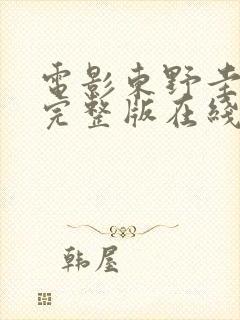 電影東野圭
完整版在綫
韩屋